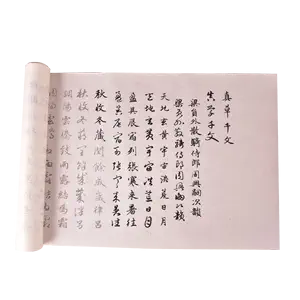 真草千文
真草千文
梁員外散騎侍郎周興嗣次韻
梁員外散騎侍郎周興嗣次韻
天地玄黃宇宙洪荒日月
天地玄黃宇宙洪荒日月
盈昃辰宿列張寒來暑往
盈昃辰宿列張寒來暑往
秋收冬藏閏餘成歲律呂
秋收冬藏閏餘成歲律呂
調陽雲騰致雨露結為霜
調陽雲騰致雨露結為霜